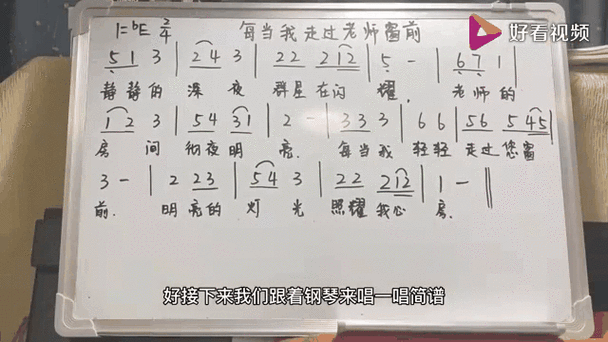 1=♭E 2/4 每当我走过老师窗前
好看视频
5 1 3 | 2 4 3 | 2 2 2 1 2 | 5 - | 6 7 1 |
静静的 深夜 群星在闪 耀, 老师的
1 2 3 | 5 4 3 1 | 2 - | 3 3 3 | 6 6 | 5 6 5 4 5 |
房间 彻夜明 亮. 每当我 轻轻 走过您窗
3 - | 2 2 3 | 5 4 3 | 2 2 2 1 2 | 1 - ‖
前. 明亮的 灯光 照耀我心 房.
好接下来我们跟着钢琴来唱一唱简谱